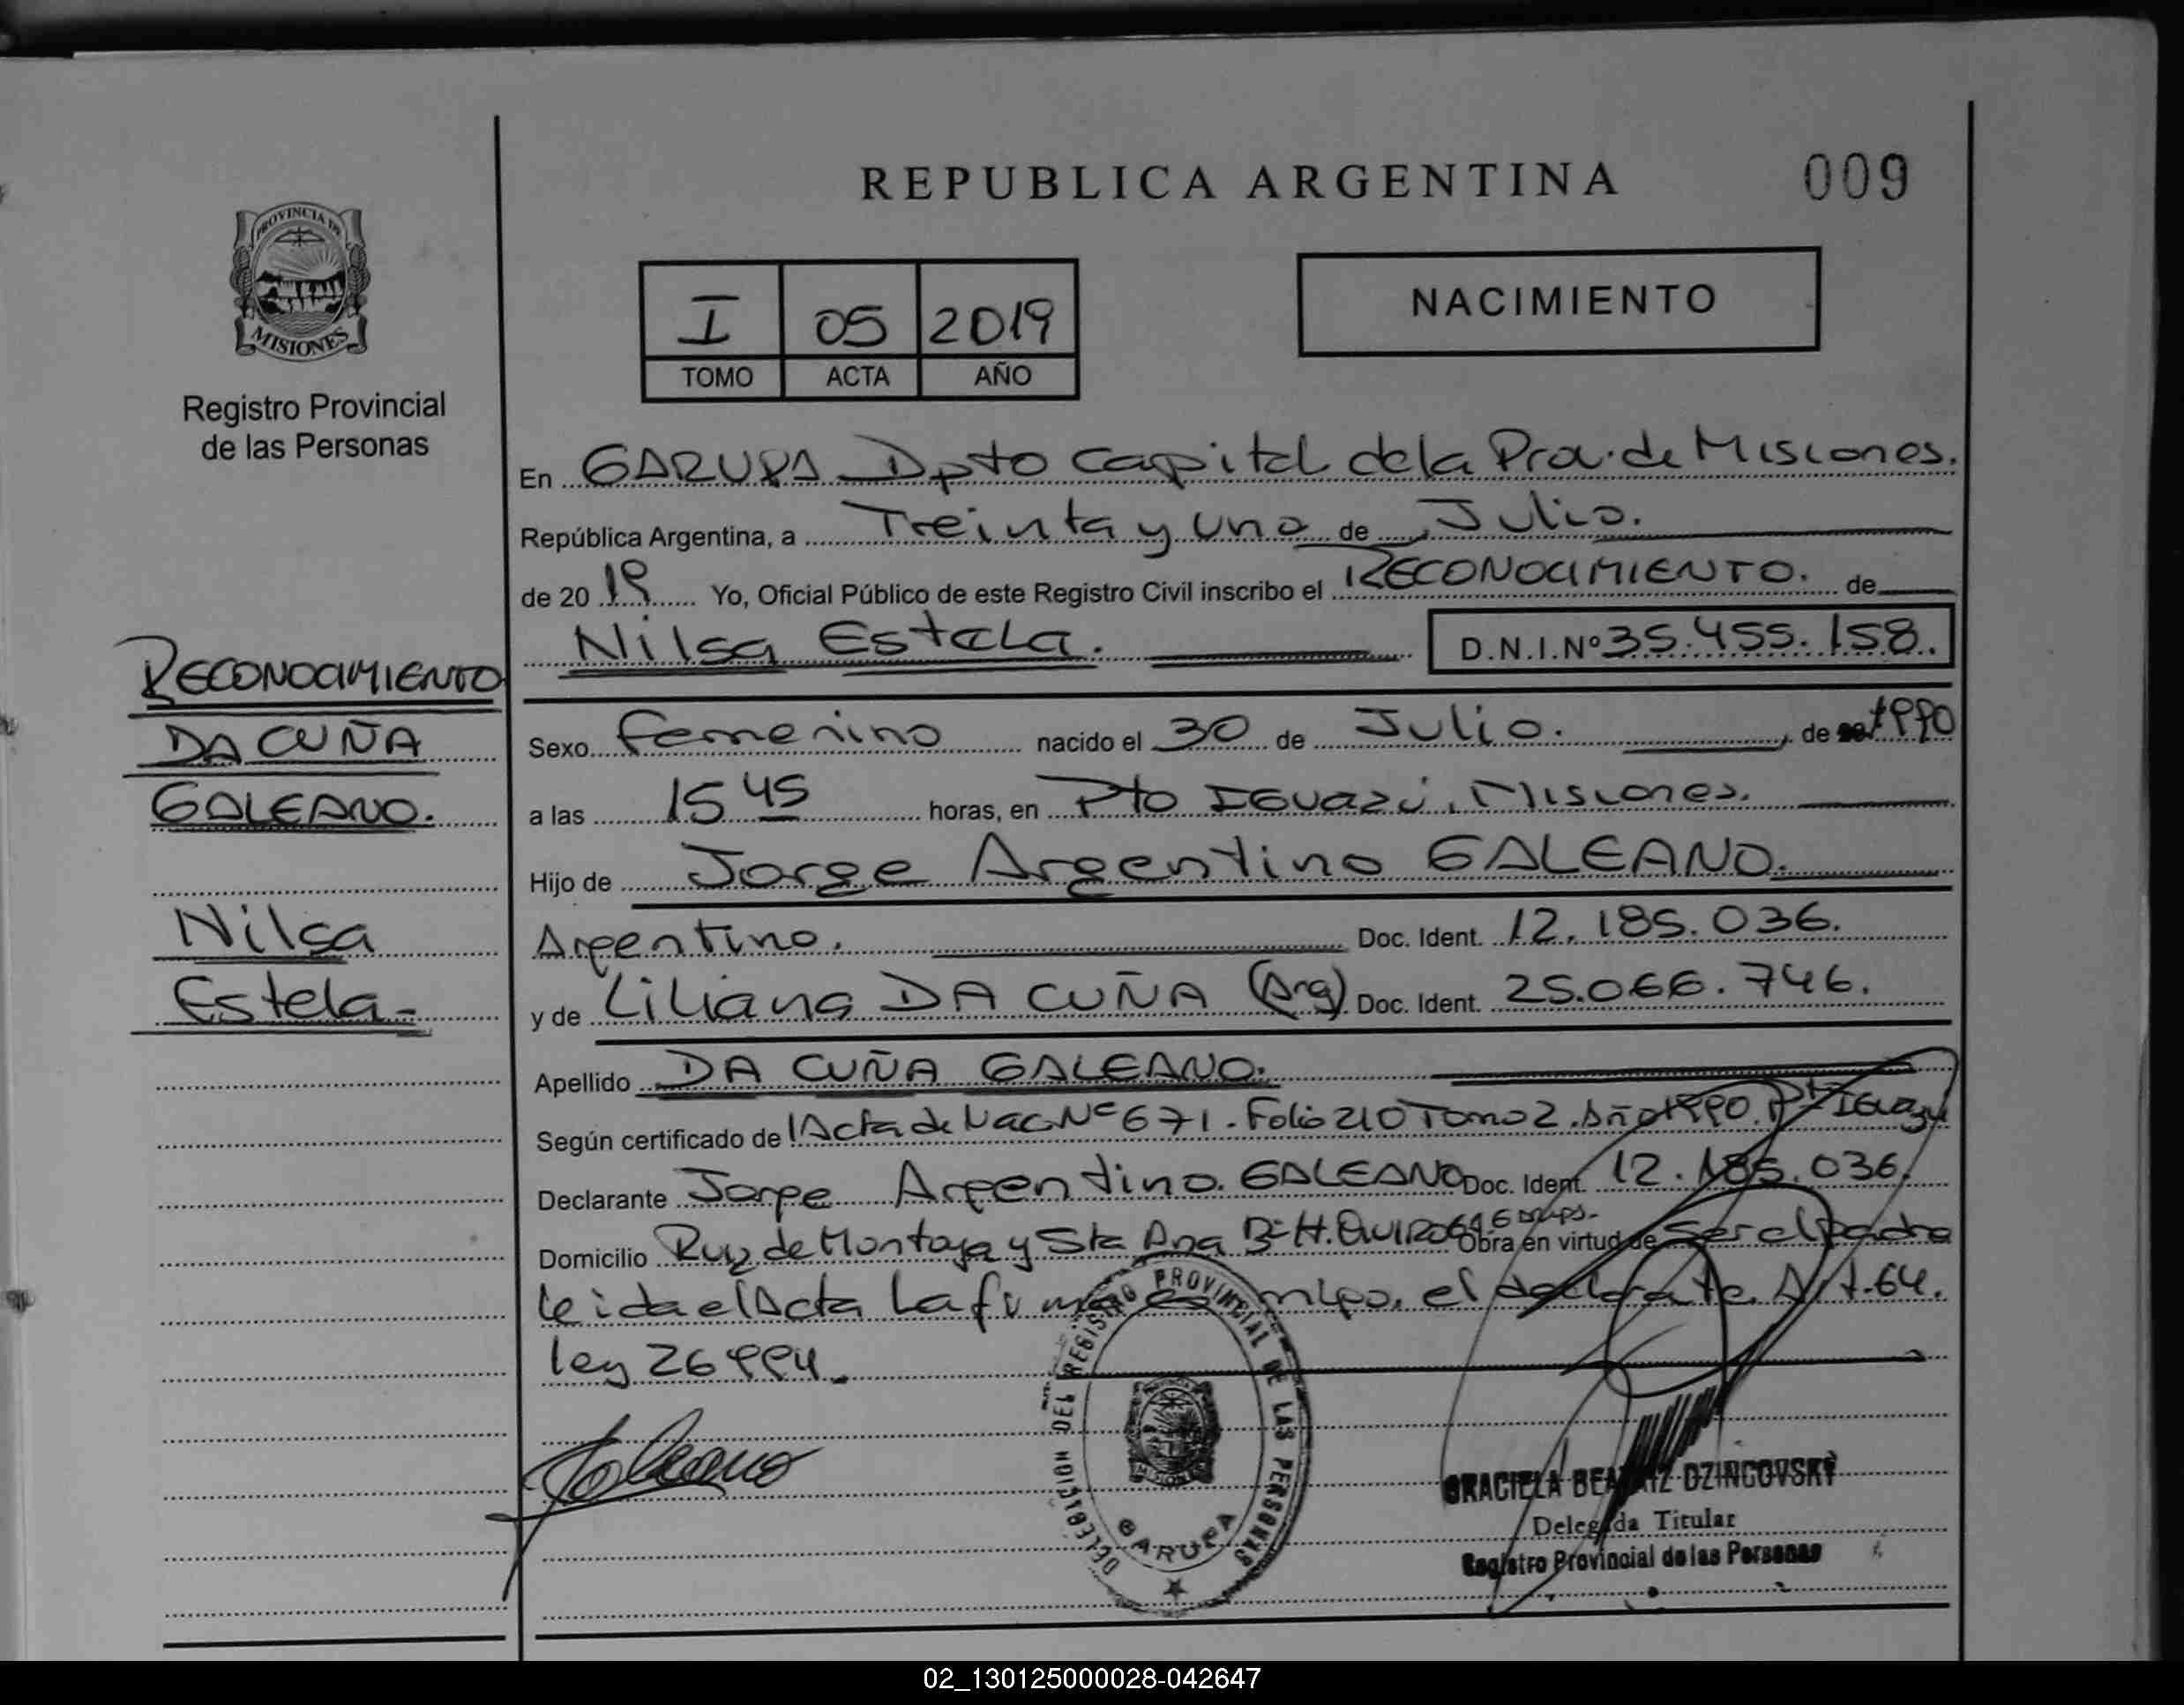 REPUBLICA ARGENTINA
009
PROVINCIA DE
MISIONES
Registro Provincial
de las Personas
I 05 2019
TOMO ACTA AÑO
NACIMIENTO
En GARUPA Dpto Capital de la Prov. de Misiones.
República Argentina, a Treinta y uno de Julio.
de 2019 Yo, Oficial Público de este Registro Civil inscribo el RECONOCIMIENTO. de
Nilsa Estela. D.N.I.Nº 35.455.158.
RECONOCIMIENTO
DA CUÑA
GALEANO.
Nilsa
Estela-
Sexo Femenino nacido el 30 de Julio. de 1990
a las 15 45 horas, en Pto IGuazú, Misiones.
Hijo de Jorge Argentino GALEANO.
Argentino. Doc. Ident. 12.185.036.
y de Liliana DA CUÑA (Arg) Doc. Ident. 25.066.746.
Apellido DA CUÑA GALEANO.
Según certificado de Acta de Nac Nº 671. Folio 210 Tomo 2. Año 1990. Pto IGuazú
Declarante Jorge Argentino. GALEANO Doc. Ident. 12.185.036.
Domicilio Ruiz de Montoya y Sta Ana Bº H. Quiroga Obra en virtud de ser el padre
leida el Acta La firma el declarante. Art. 64.
ley 26994.
Galeano
DELEGACION DEL REGISTRO PROVINCIAL DE LAS PERSONAS
MISIONES
GARUPA
GRACIELA BEATRIZ DZINGOVSKY
Delegada Titular
Registro Provincial de las Personas
02_130125000028-042647